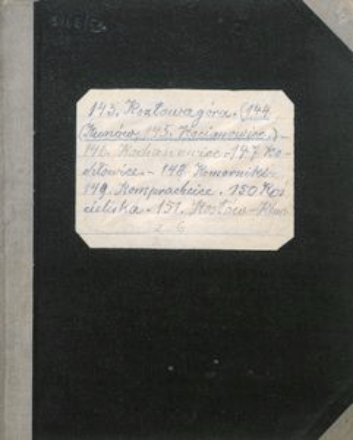 143. Kozłowagóra. (144
(Kunów, 145. Kocianowice.) -
146. Kochanowice - 147 Ko-
chłowice - 148 Komorniki -
149. Komprachcice. 150 Koś
cieliska. 151. Kostów -
2 6